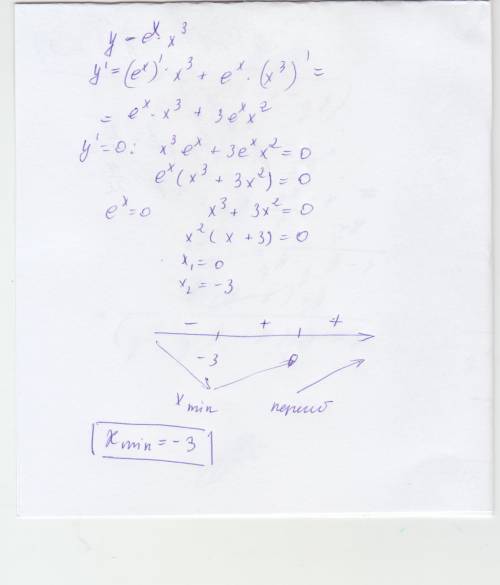 y = e^x · x^3
y' = (e^x)' · x^3 + e^x · (x^3)' =
= e^x · x^3 + 3e^x x^2
y' = 0: x^3 e^x + 3e^x x^2 = 0
e^x (x^3 + 3x^2) = 0
e^x = 0 x^3 + 3x^2 = 0
x^2 (x + 3) = 0
x_1 = 0
x_2 = -3
- + +
-3 0
x min
x min = -3